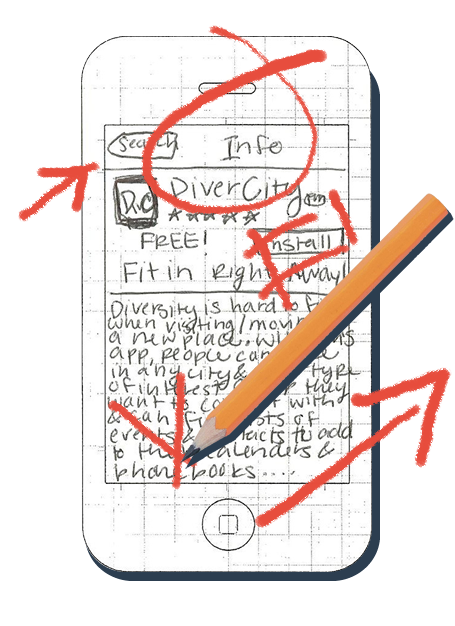 Search Info
DiverCity
D.C
FREE! Install
Fit in Right Away!
Diversity is hard to
when visiting/movin
a new place. With
app, people can
in any city & type
of interest they
want to connect with
& can lists of
events & contacts to add
to their calenders &
phone books ....